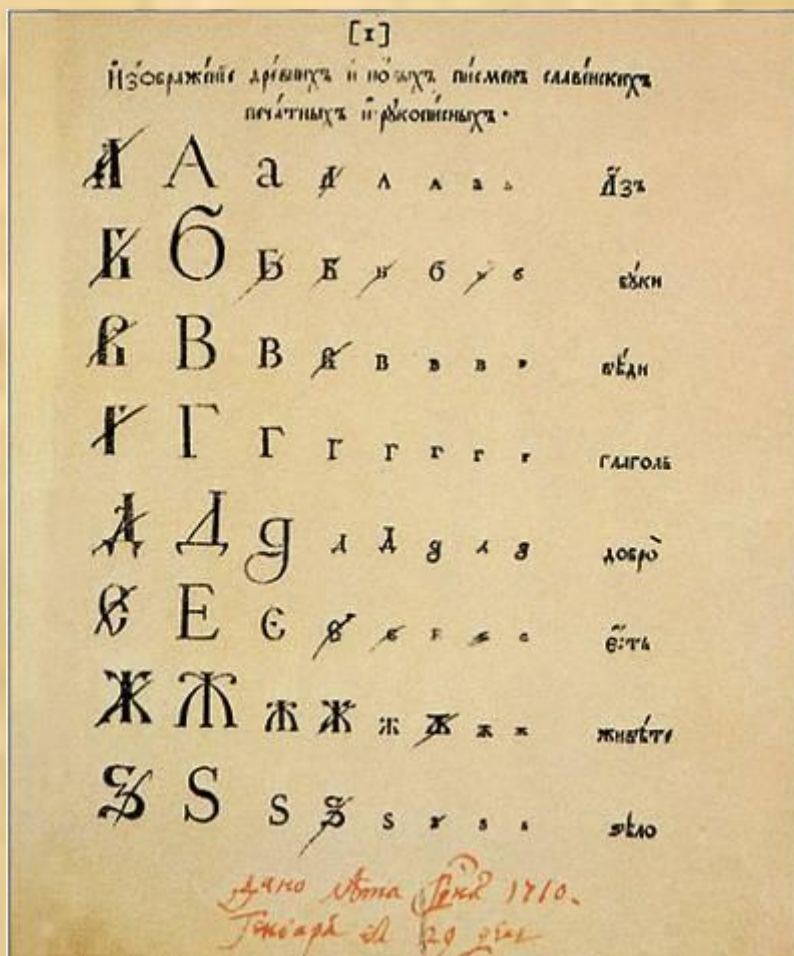 [1]
И҆зѡбраже́нїе дре́внихъ и но́выхъ пи́сменъ славе́нскихъ
печа́тныхъ и҆ рꙋкопи́сныхъ.
А А а А А А а а А҆́зъ
Б б Б Б б б бꙋ́ки
В В в В в в в в вѣ́ди
Г Г г г г г г г глаго́ль
Д Д д д д д д д добро̀
Є Е є є є е є е є҆́сть
Ж Ж ж ж ж ж ж ж живѣ́те
Ѕ Ѕ ѕ ѕ ѕ ѕ ѕ ѕ ѕѣло̀
дано лѣта Гдня 1710.
Генваря въ 29 день